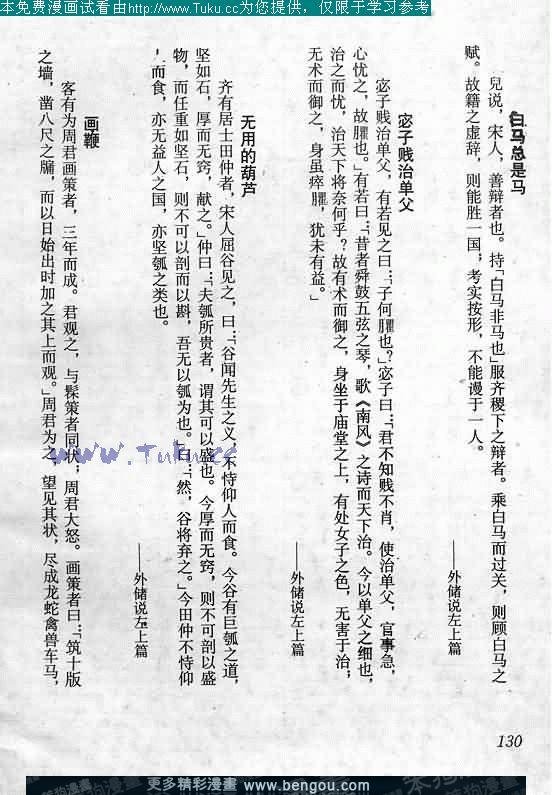 本免费漫画试看由http://www.Tuku.cc为您提供，仅限于学习参考
白马总是马
兒说，宋人，善辩者也。持「白马非马也」服齐稷下之辩者。乘白马而过关，则顾白马之
赋。故籍之虚辞，则能胜一国；考实按形，不能谩于一人。
——外储说左上篇
宓子贱治单父
宓子贱治单父，有若见之曰：「子何臞也？」宓子曰：「君不知贱不肖，使治单父，官事急，
心忧之，故臞也。」有若曰：「昔者舜鼓五弦之琴，歌《南风》之诗而天下治。今以单父之细也，
治之而忧，治天下将奈何乎？故有术而御之，身坐于庙堂之上，有处女子之色，无害于治；
无术而御之，身虽瘁臞，犹未有益。」
——外储说左上篇
无用的葫芦
齐有居士田仲者，宋人屈谷见之，曰：「谷闻先生之义，不恃仰人而食。今谷有巨瓠之道，
坚如石，厚而无窍，献之。」仲曰：「夫瓠所贵者，谓其可以盛也。今厚而无窍，则不可剖以盛
物，而任重如坚石，则不可以剖而以斟，吾无以瓠为也。」曰：「然，谷将弃之。」今田仲不恃仰
人而食，亦无益人之国，亦坚瓠之类也。
——外储说左上篇
画鞭
客有为周君画策者，三年而成。君观之，与髹策者同状；周君大怒。画策者曰：「筑十版
之墙，凿八尺之牖，而以日始出时加之其上而观。」周君为之，望见其状，尽成龙蛇禽兽车马，
www.Tuku.cc
130
更多精彩漫畫 www.bengou.com